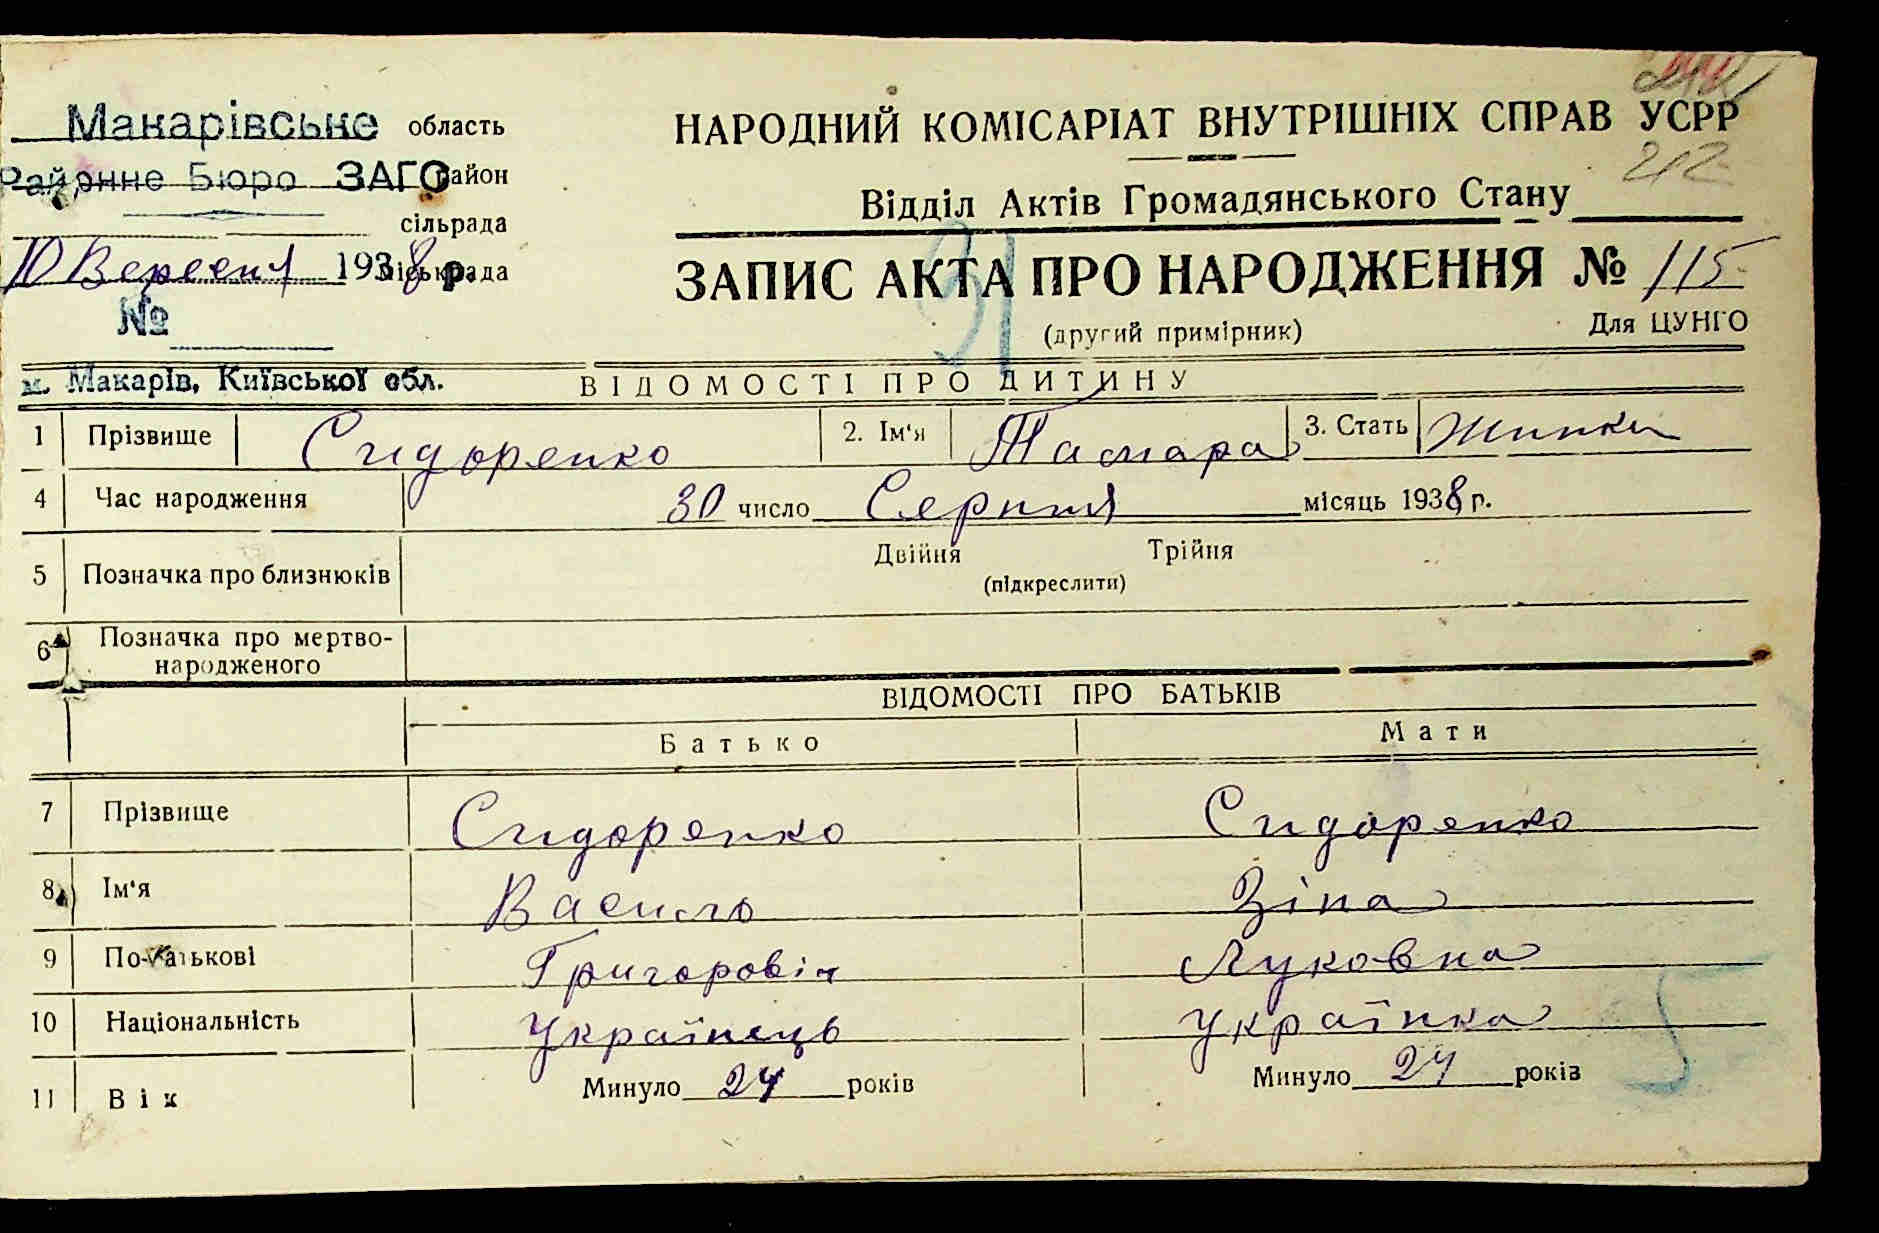 Макарівське область
Районне Бюро ЗАГС район
сільрада
10 Вересня 1938 р. міськрада
№
м. Макарів, Київської обл.
212
НАРОДНИЙ КОМІСАРІАТ ВНУТРІШНІХ СПРАВ УСРР
Відділ Актів Громадянського Стану
ЗАПИС АКТА ПРО НАРОДЖЕННЯ № 115
(другий примірник) Для ЦУНГО
ВІДОМОСТІ ПРО ДИТИНУ
1 Прізвище Сидоренко 2. Ім'я Тамара 3. Стать
4 Час народження 30 число Серпня місяць 1938 р.
5 Позначка про близнюків Двійня Трійня
(підкреслити)
6 Позначка про мертво-
народженого
ВІДОМОСТІ ПРО БАТЬКІВ
Батько Мати
7 Прізвище Сидоренко Сидоренко
8 Ім'я Василь Зіна
9 По-батькові Григоровіч Луковна
10 Національність Українець Українка
11 Вік Минуло 24 років Минуло 24 років